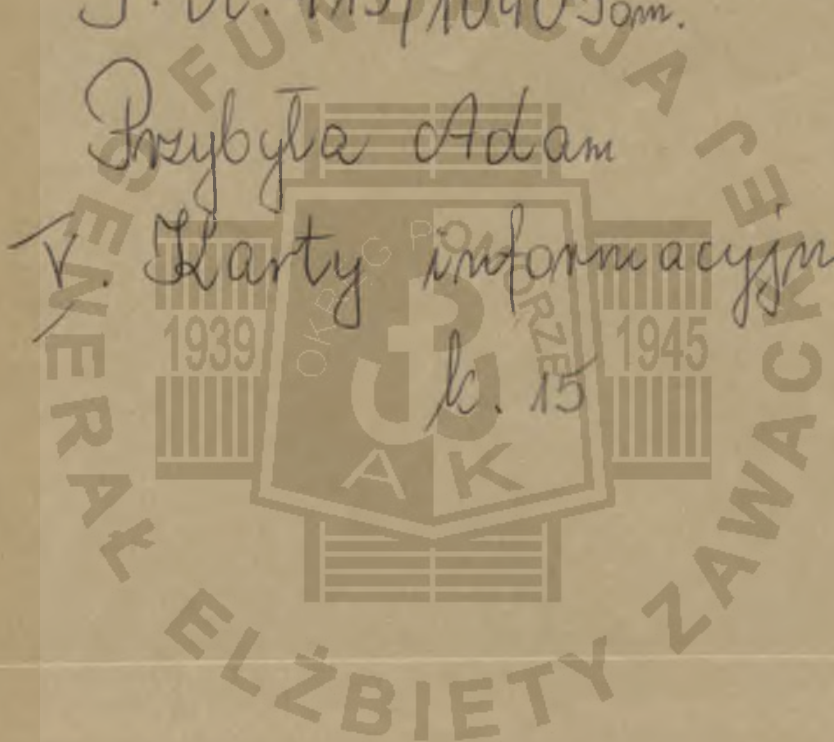 M:1113/1040 Pom.
Przybyła Adam
V. Karty informacyjn
k. 15
FUNDACJA
GENERAŁ ELŻBIETY ZAWACKIEJ
OKRĘG POMORZE
1939
1945
AK